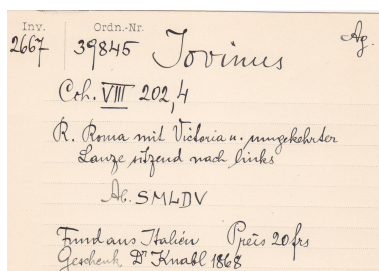 Inv. Ordn.-Nr.
2667 39845 Jovinus Ag.
Coh. VIII 202,4
R. Roma mit Victoria u. umgekehrter
Lanze sitzend nach links
Ab. SMLDV
Fund aus Italien Preis 20 frs
Geschenk Dr Knabl 1868